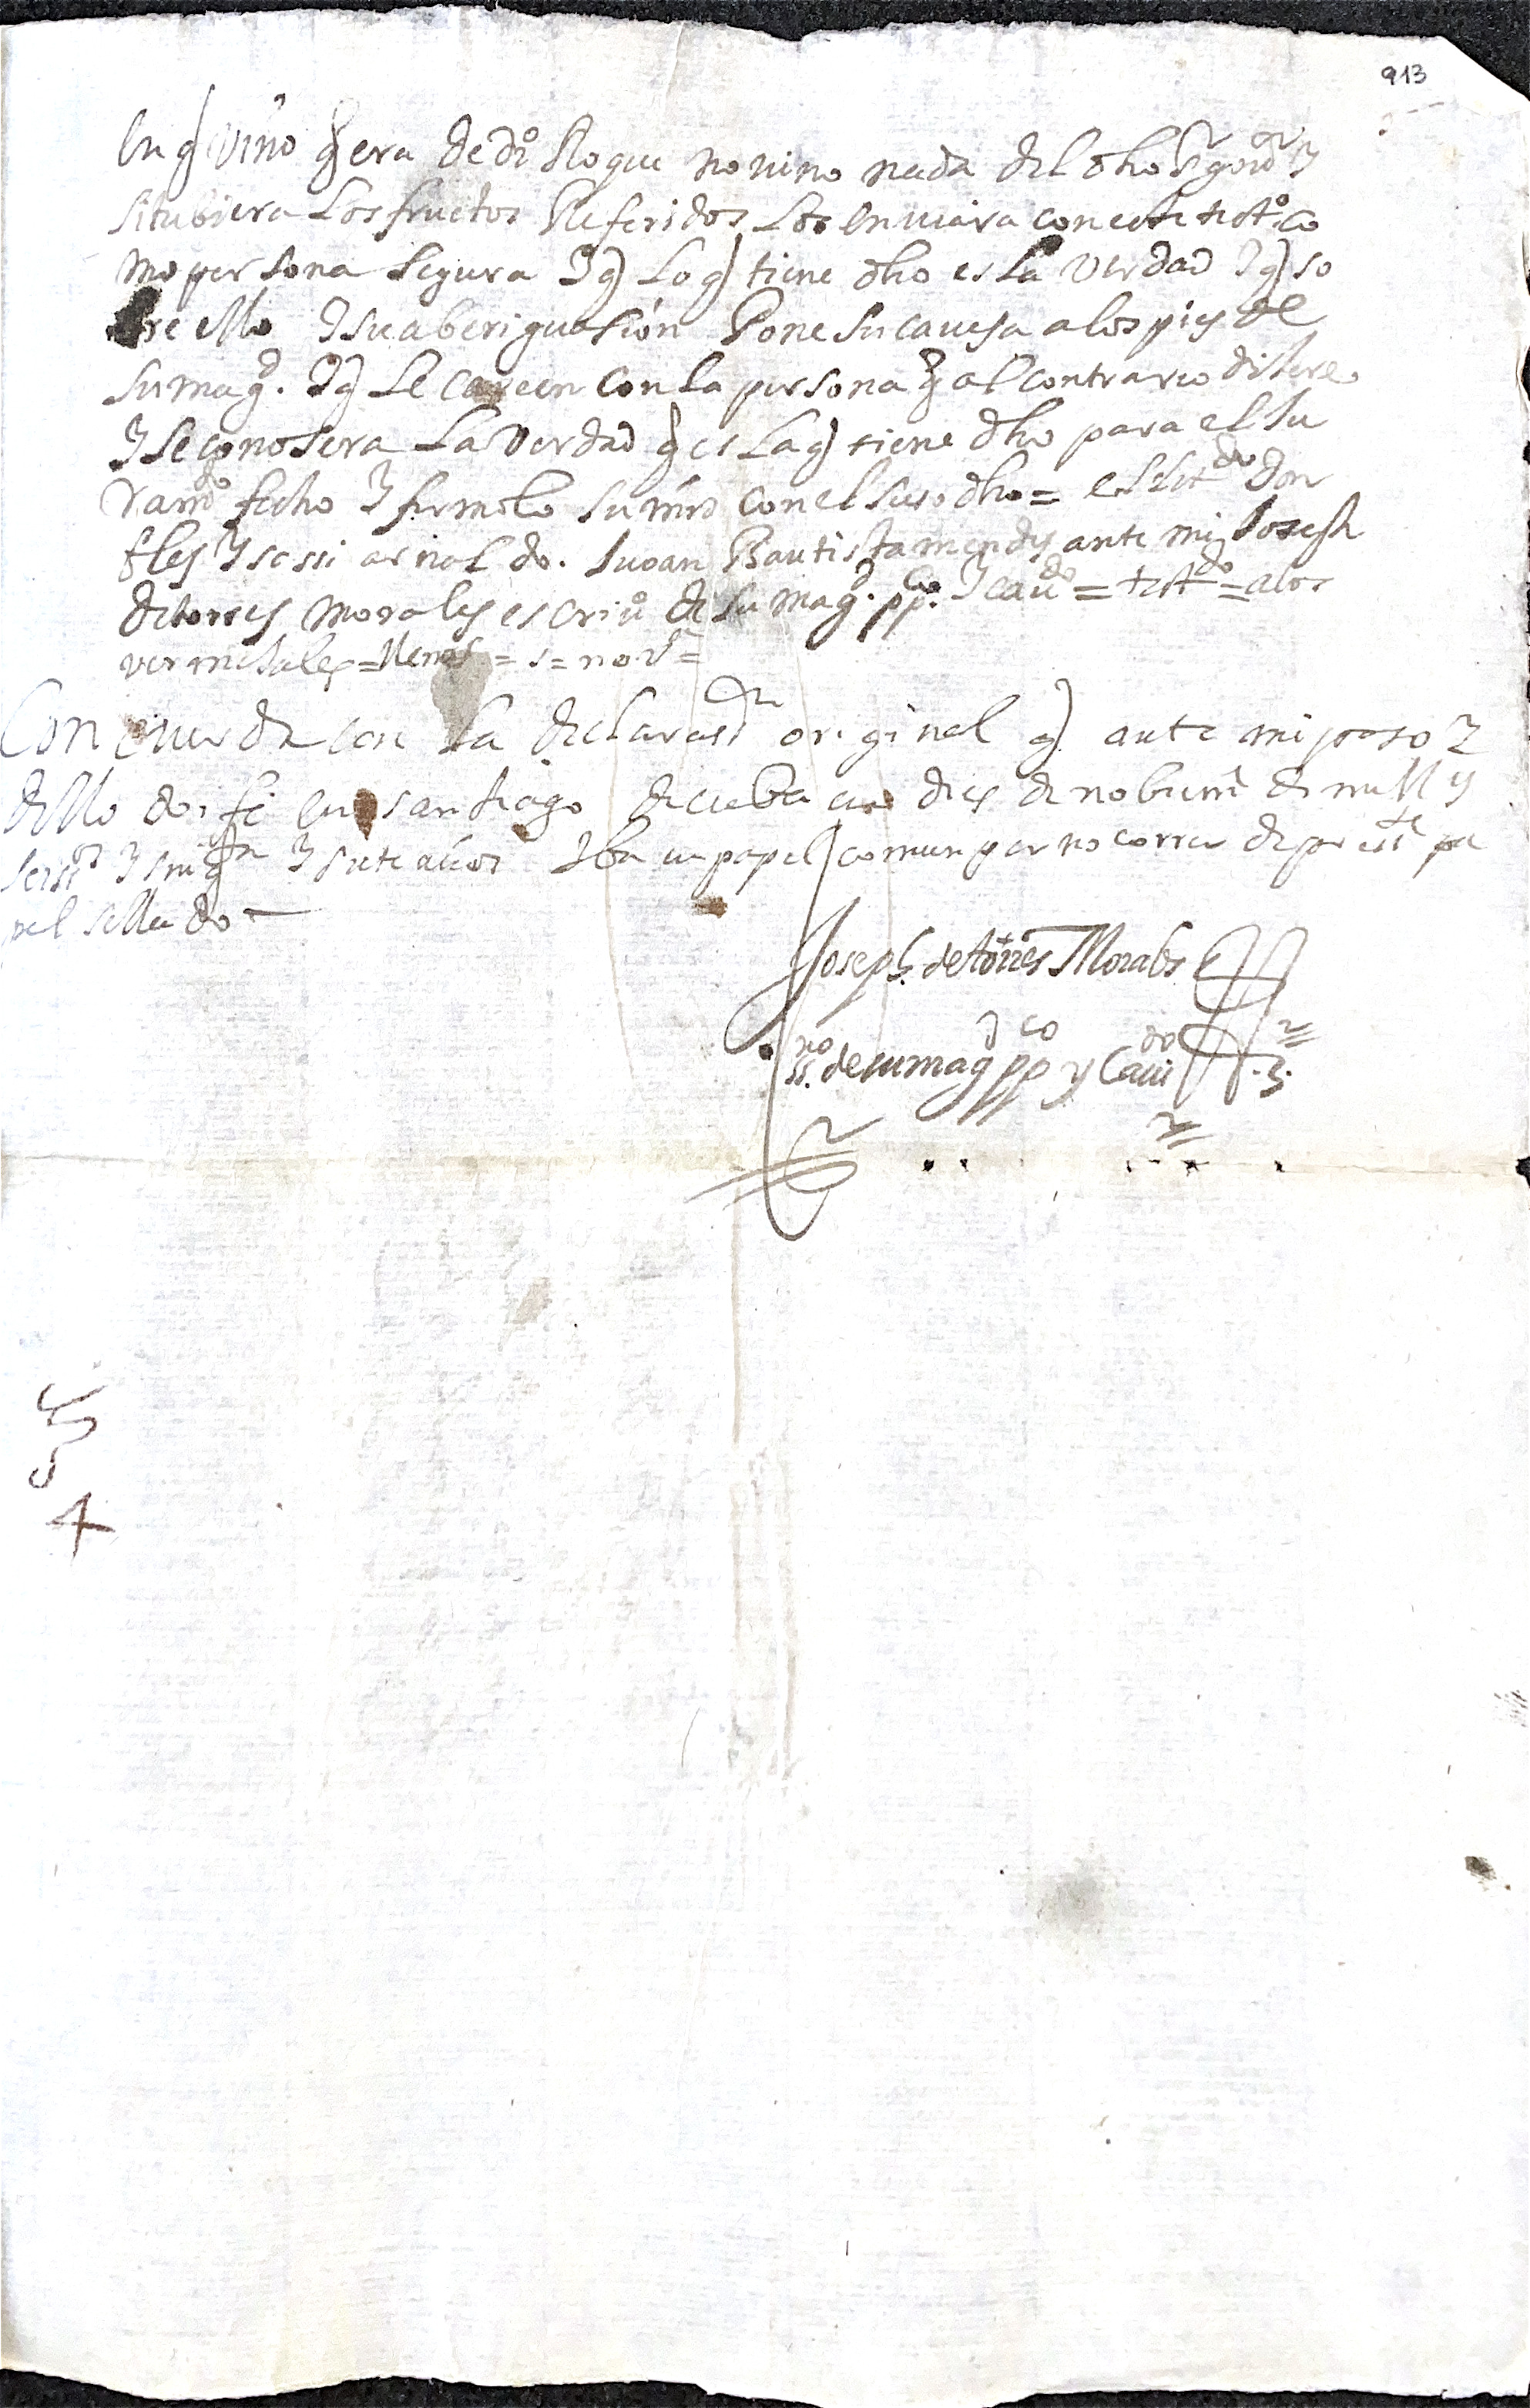 913
En q vino q era de dio Roque no vino nada del dho Sr gour y
si tubiera Los fructos Referidos Los enuiara con este testo co
mo persona segura y q Lo q tiene dho es La verdad y q so
bre ello y su aberiguasion Pone su cauesa a los pies de
su magd. y q Le careen con la persona q al contrario dixere
y se conosera La verdad q es La q tiene dho para el Ju
ramdo fecho y firmolo su mrd con el suso dho = el Lisdo don
 ar nol do. Juoan Bautista mendes ante mi Joseph
de torres morales escriuo de su magd. ppco y caudo = testdo = a los
 = = s = no v =
Concuerda con la declarasion original q ante mi paso y
dello doi fe en santiago de cuba en dies de nobiemre de mill y
seissos y sinqta y siete años Ba en papel comun por no correr de preste pa
pel sellado
Joseph de torres Morales
ssno de su magd ppco y Cauido
4